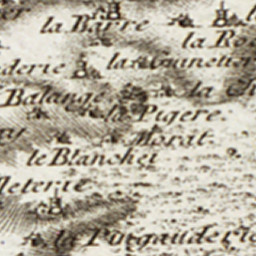 la Barre
la Ro
derie
la Gunetier
Balange
la Ch
la Pigere
Morat
le Blanchet
leterie
la Pingauderie